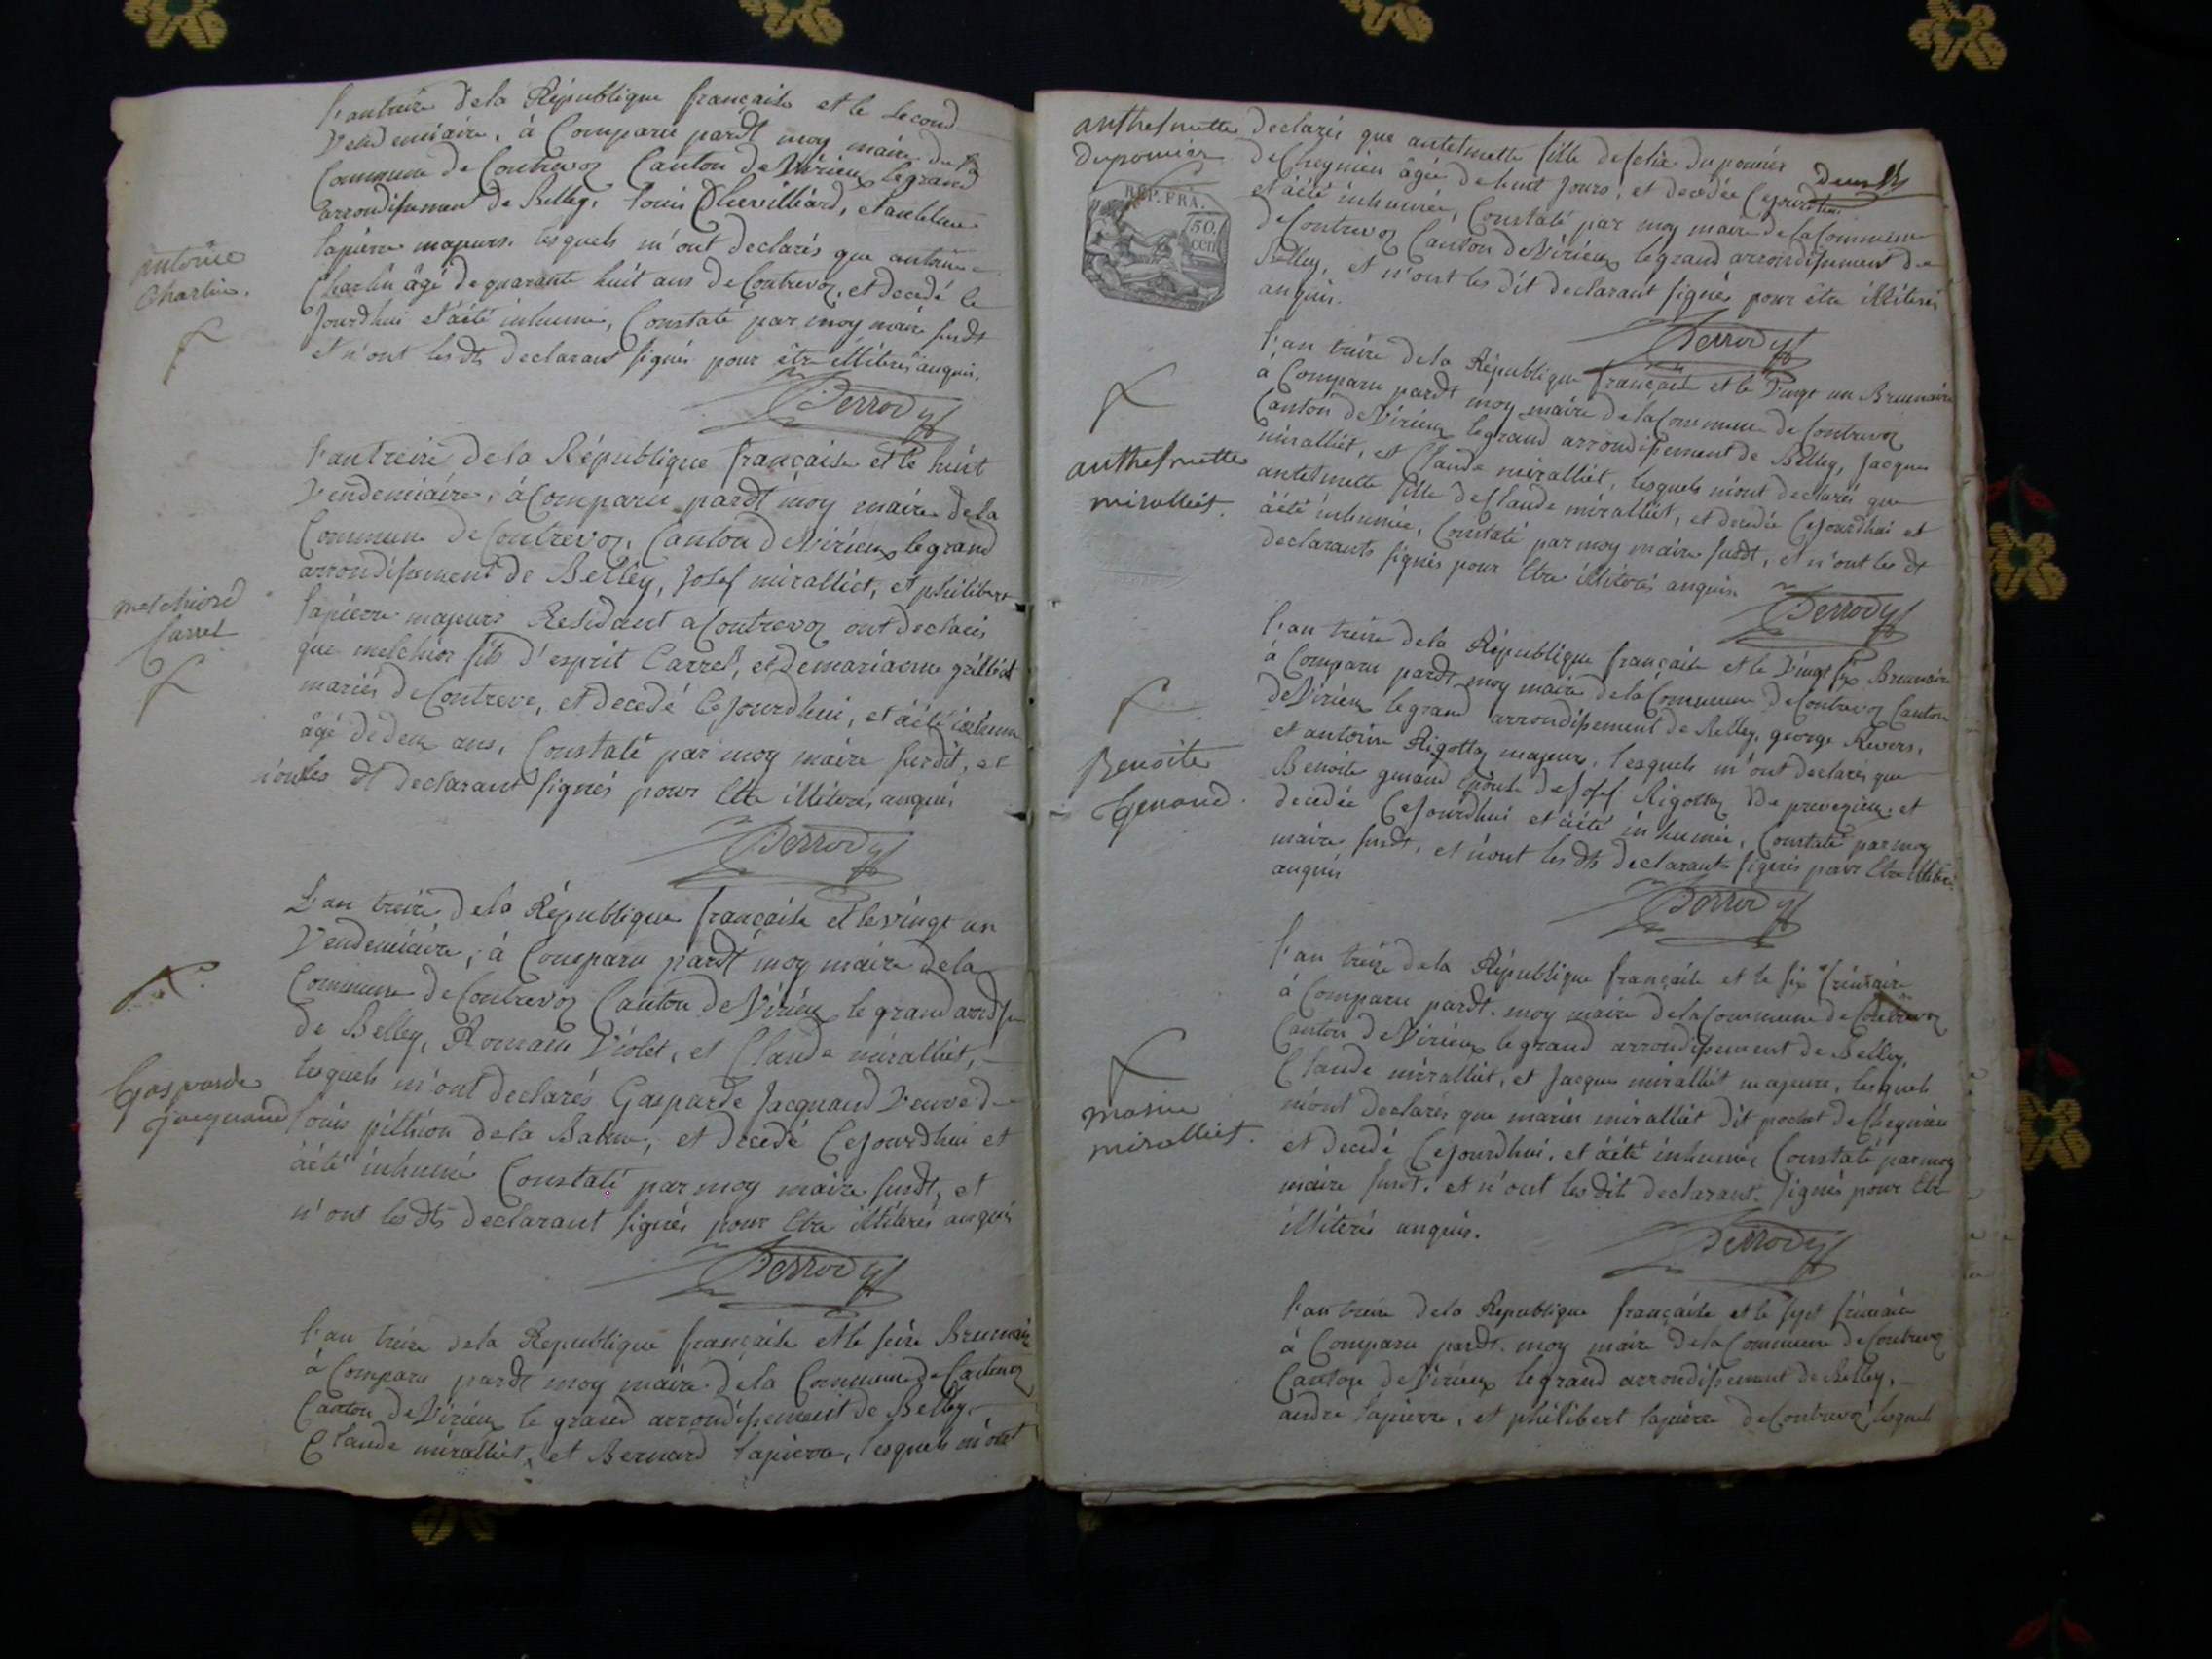 l'an treize de la République française et le second
Vendemiaire, à Comparu pardt moy maire de la
Commune de Contrevoz Canton de Virieux le grand
arrondissement de Belley, Louis Chevilliard, et antelme
lapierre majeurs. lesquels m'ont declarés que antoine
antoine
Charlin.
Charlin âgé de quarante huit ans de Contrevoz, et decedé ce
Jourdhui et àété inhumé, Constaté par moy maire susdt
et n'ont les dts declarant signés pour être illiterés anquis.
Perrody
l'an treize de la République française et le huit
Vendemiaire, à Comparu pardt moy maire de la
Commune de Contrevoz, Canton de Virieux le grand
arrondissement de Belley, Josef miralliet, et philibert
melchiord
Carrel
lapierre majeurs Residant a Contrevoz ont declarés
que melchior fils d'esprit Carrel, et de mariacme grilliet
mariés de Contreve, et decedé Cejourdhui, et àété inhumé
âgé de deux ans, Constaté par moy maire susdit, et
n'ont les dt declarant signés pour Etre illiterés anquis
Perrody
L'an treize de la République française et le vingt un
Vendemiaire, à Comparu pardt moy maire de la
Commune de Contrevoz Canton de Virieux le grand arrdse
de Belley, Romain Violet, et Claude miralliet,
lesquels m'ont declarés Gasparde Jacquand Veuve de
Gasparde
jacquand
Louis pillion de la Balme, et decedé Cejourdhui et
àété inhumé Constaté par moy maire susdt, et
n'ont les dts declarant signés pour Etre illiterés anquis
Perrody
l'an treize de la République française et le seize Brumaire
à Comparu pardt moy maire de la Commune de Contrevoz
Canton de Virieux le grand arrondissement de Belley,
Claude miralliet, et Bernard lapierre, lesquels m'ont
anthelmette
duponier
declarés que antelmette fille de felix duponier
de Cheynieu âgée de huit Jours, et decedée Cejourdhui
et àété inhumée, Constaté par moy maire de la Commune
REP. FRA.
50.
cen
de Contrevoz Canton de Virieux le grand arrondissement de
Belley, et n'ont les dit declarant signés pour être illiterés
anquis.
Perrody
l'an treize de la République française et le Vingt un Brumaire
à Comparu pardt moy maire de la Commune de Contrevoz
Canton de Virieux le grand arrondissement de Belley, Jacques
anthelmette
miralliet.
miralliet, et Claude miralliet, lesquels m'ont declarés que
antelmette fille de Claude miralliet, et decedée Cejourdhui et
àété inhumée, Constaté par moy maire susdt, et n'ont les dt
declarants signés pour Etre illiterés anquis
Perrody
l'an treize de la République française et le Vingt six Brumaire
à Comparu pardt moy maire de la Commune de Contrevoz Canton
de Virieux le grand arrondissement de Belley, george Revers,
et antoine Rigottaz majeurs, lesquels m'ont declarés que
Benoite
Genand.
Benoite genand épouse de Josef Rigottaz de preveyzieu, et
decedée Cejourdhui et àété inhumée, Constaté par moy
maire susdt, et n'ont les dts declarants signés pour Etre illiterés
anquis
Perrody
l'an treize de la République française et le six frimaire
à Comparu pardt. moy maire de la Commune de Contrevoz
Canton de Virieux le grand arrondissement de Belley,
Claude miralliet, et Jacques miralliet majeurs, lesquels
marin
miralliet.
m'ont declarés que marin miralliet dit pochet de Cheynieu
et decedé Cejourdhui, et àété inhumé, Constaté par moy
maire susdt. et n'ont les dits declarant signés pour Etre
illiterés anquis.
Perrody
l'an treize de la République française et le sept frimaire
à Comparu pardt. moy maire de la Commune de Contrevoz
Canton de Virieux le grand arrondissement de Belley,
andré lapierre, et philibert lapierre de Contrevoz lesquels